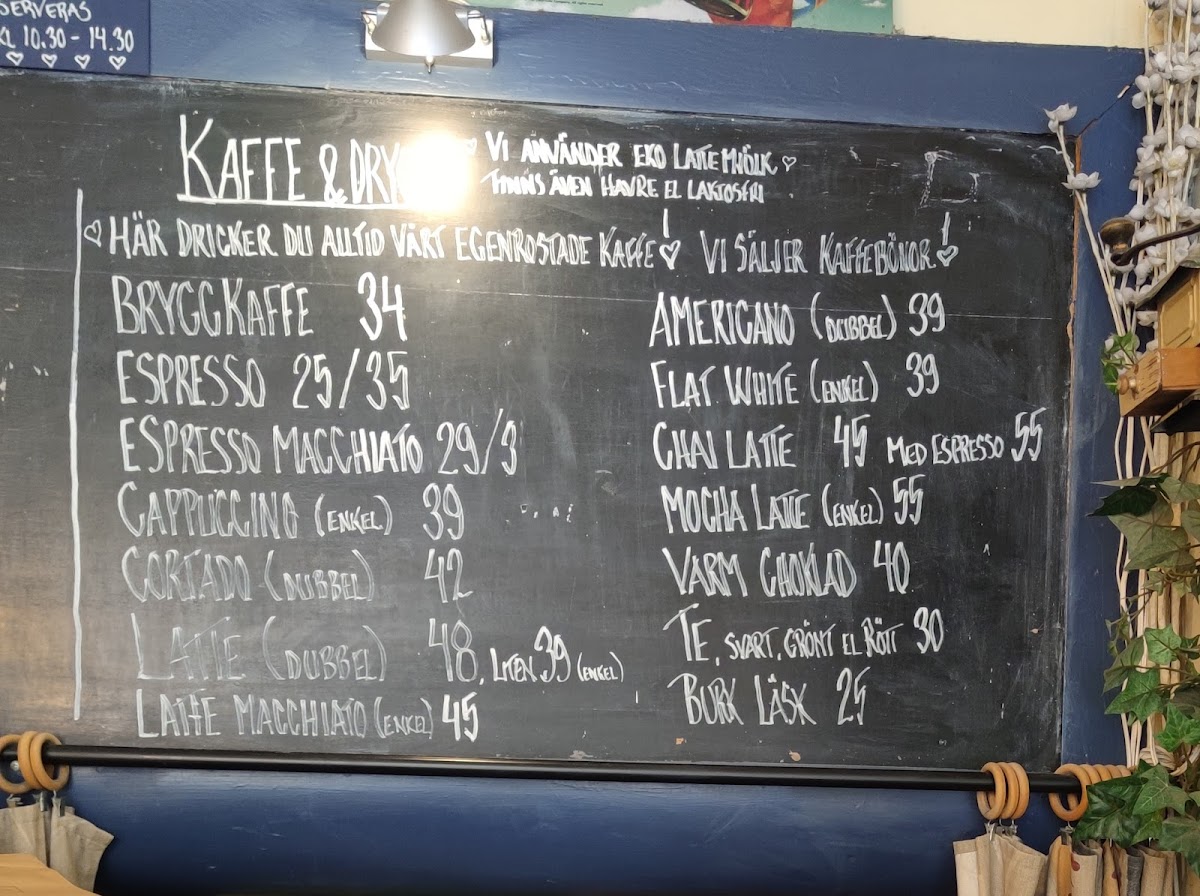 SERVERAS
KL 10.30 - 14.30
KAFFE & DRY
VI ANVÄNDER EKO LATTEMJÖLK
FINNS ÄVEN HAVRE EL LAKTOSFRI
HÄR DRICKER DU ALLTID VÅRT EGENROSTADE KAFFE! VI SÄLJER KAFFEBÖNOR!
BRYGGKAFFE 34
ESPRESSO 25/35
ESPRESSO MACCHIATO 29/3
CAPPUCCINO (ENKEL) 39
CORTADO (DUBBEL) 42
LATTE (DUBBEL) 48, LITEN 39 (ENKEL)
LATTE MACCHIATO (ENKEL) 45
AMERICANO (DUBBEL) 39
FLAT WHITE (ENKEL) 39
CHAI LATTE 45 MED ESPRESSO 55
MOCHA LATTE (ENKEL) 55
VARM CHOKLAD 40
TE, SVART, GRÖNT EL RÖTT 30
BURK LÄSK 25